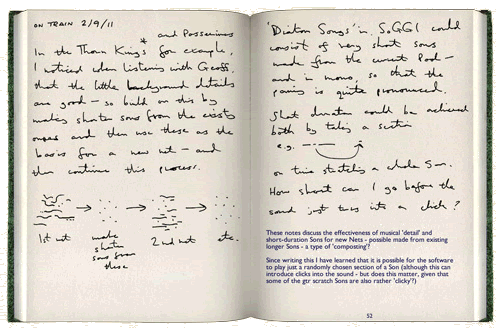 ON TRAIN 2/9/11
and Possessions
In the Thorn Kings* for example,
I noticed when listening with Geoff,
that the little background details
are good - so build on this by
making shorter sons from the existing
ones and then use these as the
basis for a new net - and
then continue this process.
1st net
make
shorter
sons from
these
2nd net
etc.
'Diatom Songs' in SoGGI could
consist of very short sons
made from the current Pool -
and in mono, so that the
panning is quite pronounced.
Short duration could be achieved
both by taking a section
e.g.
or time stretching a whole Son.
How short can I go before the
sound just turns into a click?
These notes discuss the effectiveness of musical 'detail' and
short-duration Sons for new Nets - possible made from existing
longer Sons - a type of 'composting'?
Since writing this I have learned that it is possible for the software
to play just a randomly chosen section of a Son (although this can
introduce clicks into the sound - but does this matter, given that
some of the gtr scratch Sons are also rather 'clicky'?)
52